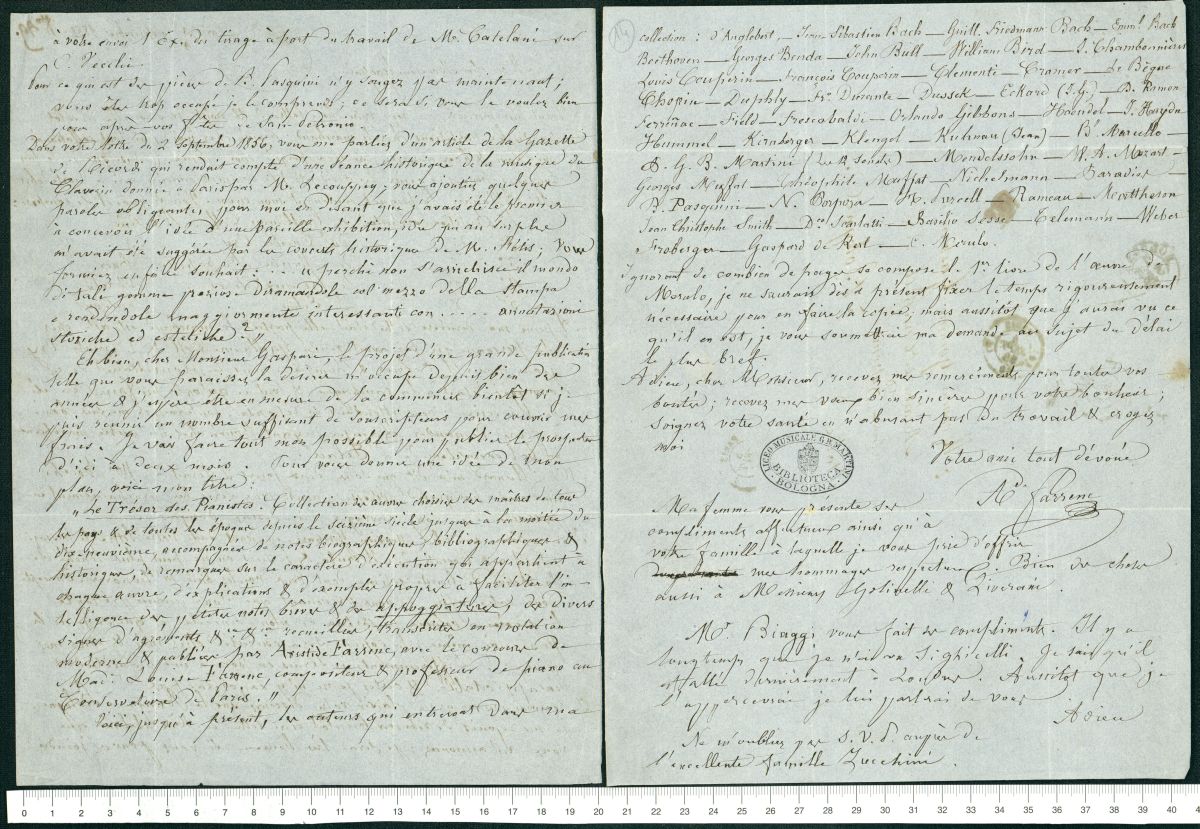 à votre envoi 1 Ex. du tirage à part du travail de Mr. Catelani sur
O. Vecchi.
Pour ce qui est des pièces de B. Pasquini n'y songez pas maintenant;
vous êtes trop occupé je le comprends; ce sera si vous le voulez bien
pour après vos fêtes de San Petronio.
Dans votre lettre du 2 Septembre 1856, vous me parliez d'un article de la Gazette
de Ricordi qui rendait compte d'une séance historique de la musique de
Clavecin donnée à Paris par M. Lecouppey; vous ajoutiez quelques
paroles obligeantes pour moi en disant que j'avais été le premier
à concevoir l'idée d'une pareille exhibition, idée qui au surplus
m'avait été suggérée par les concerts historiques de M. Fétis; vous
formiez enfin ce souhait: .... "perchè non s'arrichisce il mondo
di tali gemme preziose diramandole col mezzo della stampa
e rendendole maggiormente interessanti con ..... annotazioni
storiche ed estetiche?"
Eh bien, cher Monsieur Gaspari, le projet d'une grande publication
telle que vous paraissez la désirer m'occupe depuis bien des
années & j'espère être en mesure de la commencer bientôt si je
puis réunir un nombre suffisant de souscripteurs pour couvrir mes
frais. Je vais faire tout mon possible pour publier le prospectus
d'ici à deux mois. Pour vous donner une idée de mon
plan, voici mon titre:
"Le Trésor des Pianistes. Collection des œuvres choisies des maîtres de tous
les pays & de toutes les époques depuis le seizième siècle jusques à la moitié du
dix-neuvième, accompagnées de notes biographiques, bibliographiques &
historiques, de remarques sur le caractère d'exécution qui appartient à
chaque œuvre, d'explications & d'exemples propres à faciliter l'in-
telligence des petites notes brèves & des appoggiatures, des divers
signes d'agréments &a &a recueillies, transcrites en notation
moderne & publiées par Aristide Farrenc, avec le concours de
Mad. Louise Farrenc, compositeur & professeur de piano au
Conservatoire de Paris."
Voici, jusqu'à présent, les auteurs qui entreront dans ma
14
collection: d'Anglebert — Jean Sébastien Bach — Guill. Friedmann Bach — Emml. Bach
Beethoven — Georges Benda — John Bull — William Bird — J. Chambonnières
Louis Couperin — François Couperin — Clementi — Cramer — Le Bègue
Chopin — Duphly — Fr. Durante — Dussek — Eckard (J.G.) — B.
Ferriñac — Field — Frescobaldi — Orlando Gibbons — Haendel — J. Haydn
Hummel — Kirnberger — Klengel — Kuhnau (Jean) — B. Marcello —
P. G. B. Martini (les 12 Sonate) — Mendelssohn — W. A. Mozart —
Georges Muffat — Théophile Muffat — Nichelmann — Paradies —
B. Pasquini — N. Porpora — H. Purcell — Rameau — Mattheson
Jean Christophe Smith — Do. Scarlatti — Basilio Sesse — Telemann — Weber
Froberger — Gaspard de Kerl — C. Merulo.
Ignorant de combien de pages se compose le 1er livre de l'œuvre di
Merulo, je ne saurais dès à présent fixer le temps rigoureusement
nécessaire pour en faire la copie, mais aussitôt que j'aurai vu ce
qu'il en est, je vous soumettrai ma demande au sujet du délai
le plus bref.
Adieu, cher Monsieur, recevez mes remerciments pour toutes vos
bontés; recevez mes vœux bien sincères pour votre bonheur;
soignez votre santé en n'abusant pas du travail & croyez
moi
Votre ami tout dévoué
Ad. Farrenc
LICEO MUSICALE G.B. MARTINI
BIBLIOTECA
BOLOGNA
Ma femme vous présente ses
compliments affectueux ainsi qu'à
votre famille à laquelle je vous prie d'offrir
mes hommages respectueux. Bien des choses
aussi à Messieurs Golinelli & Liverani.
Mr. Biaggi vous fait ses compliments. Il y a
longtemps que je n'ai vu Sighicelli. Je sais qu'il
est allé dernièrement à Londres. Aussitôt que je
l'appercevrai je lui parlerai de vous.
Adieu
Ne m'oubliez pas s. v. p. auprès de
l'excellente famille Zucchini.
0 1 2 3 4 5 6 7 8 9 10 11 12 13 14 15 16 17 18 19 20 21 22 23 24 25 26 27 28 29 30 31 32 33 34 35 36 37 38 39 40 41